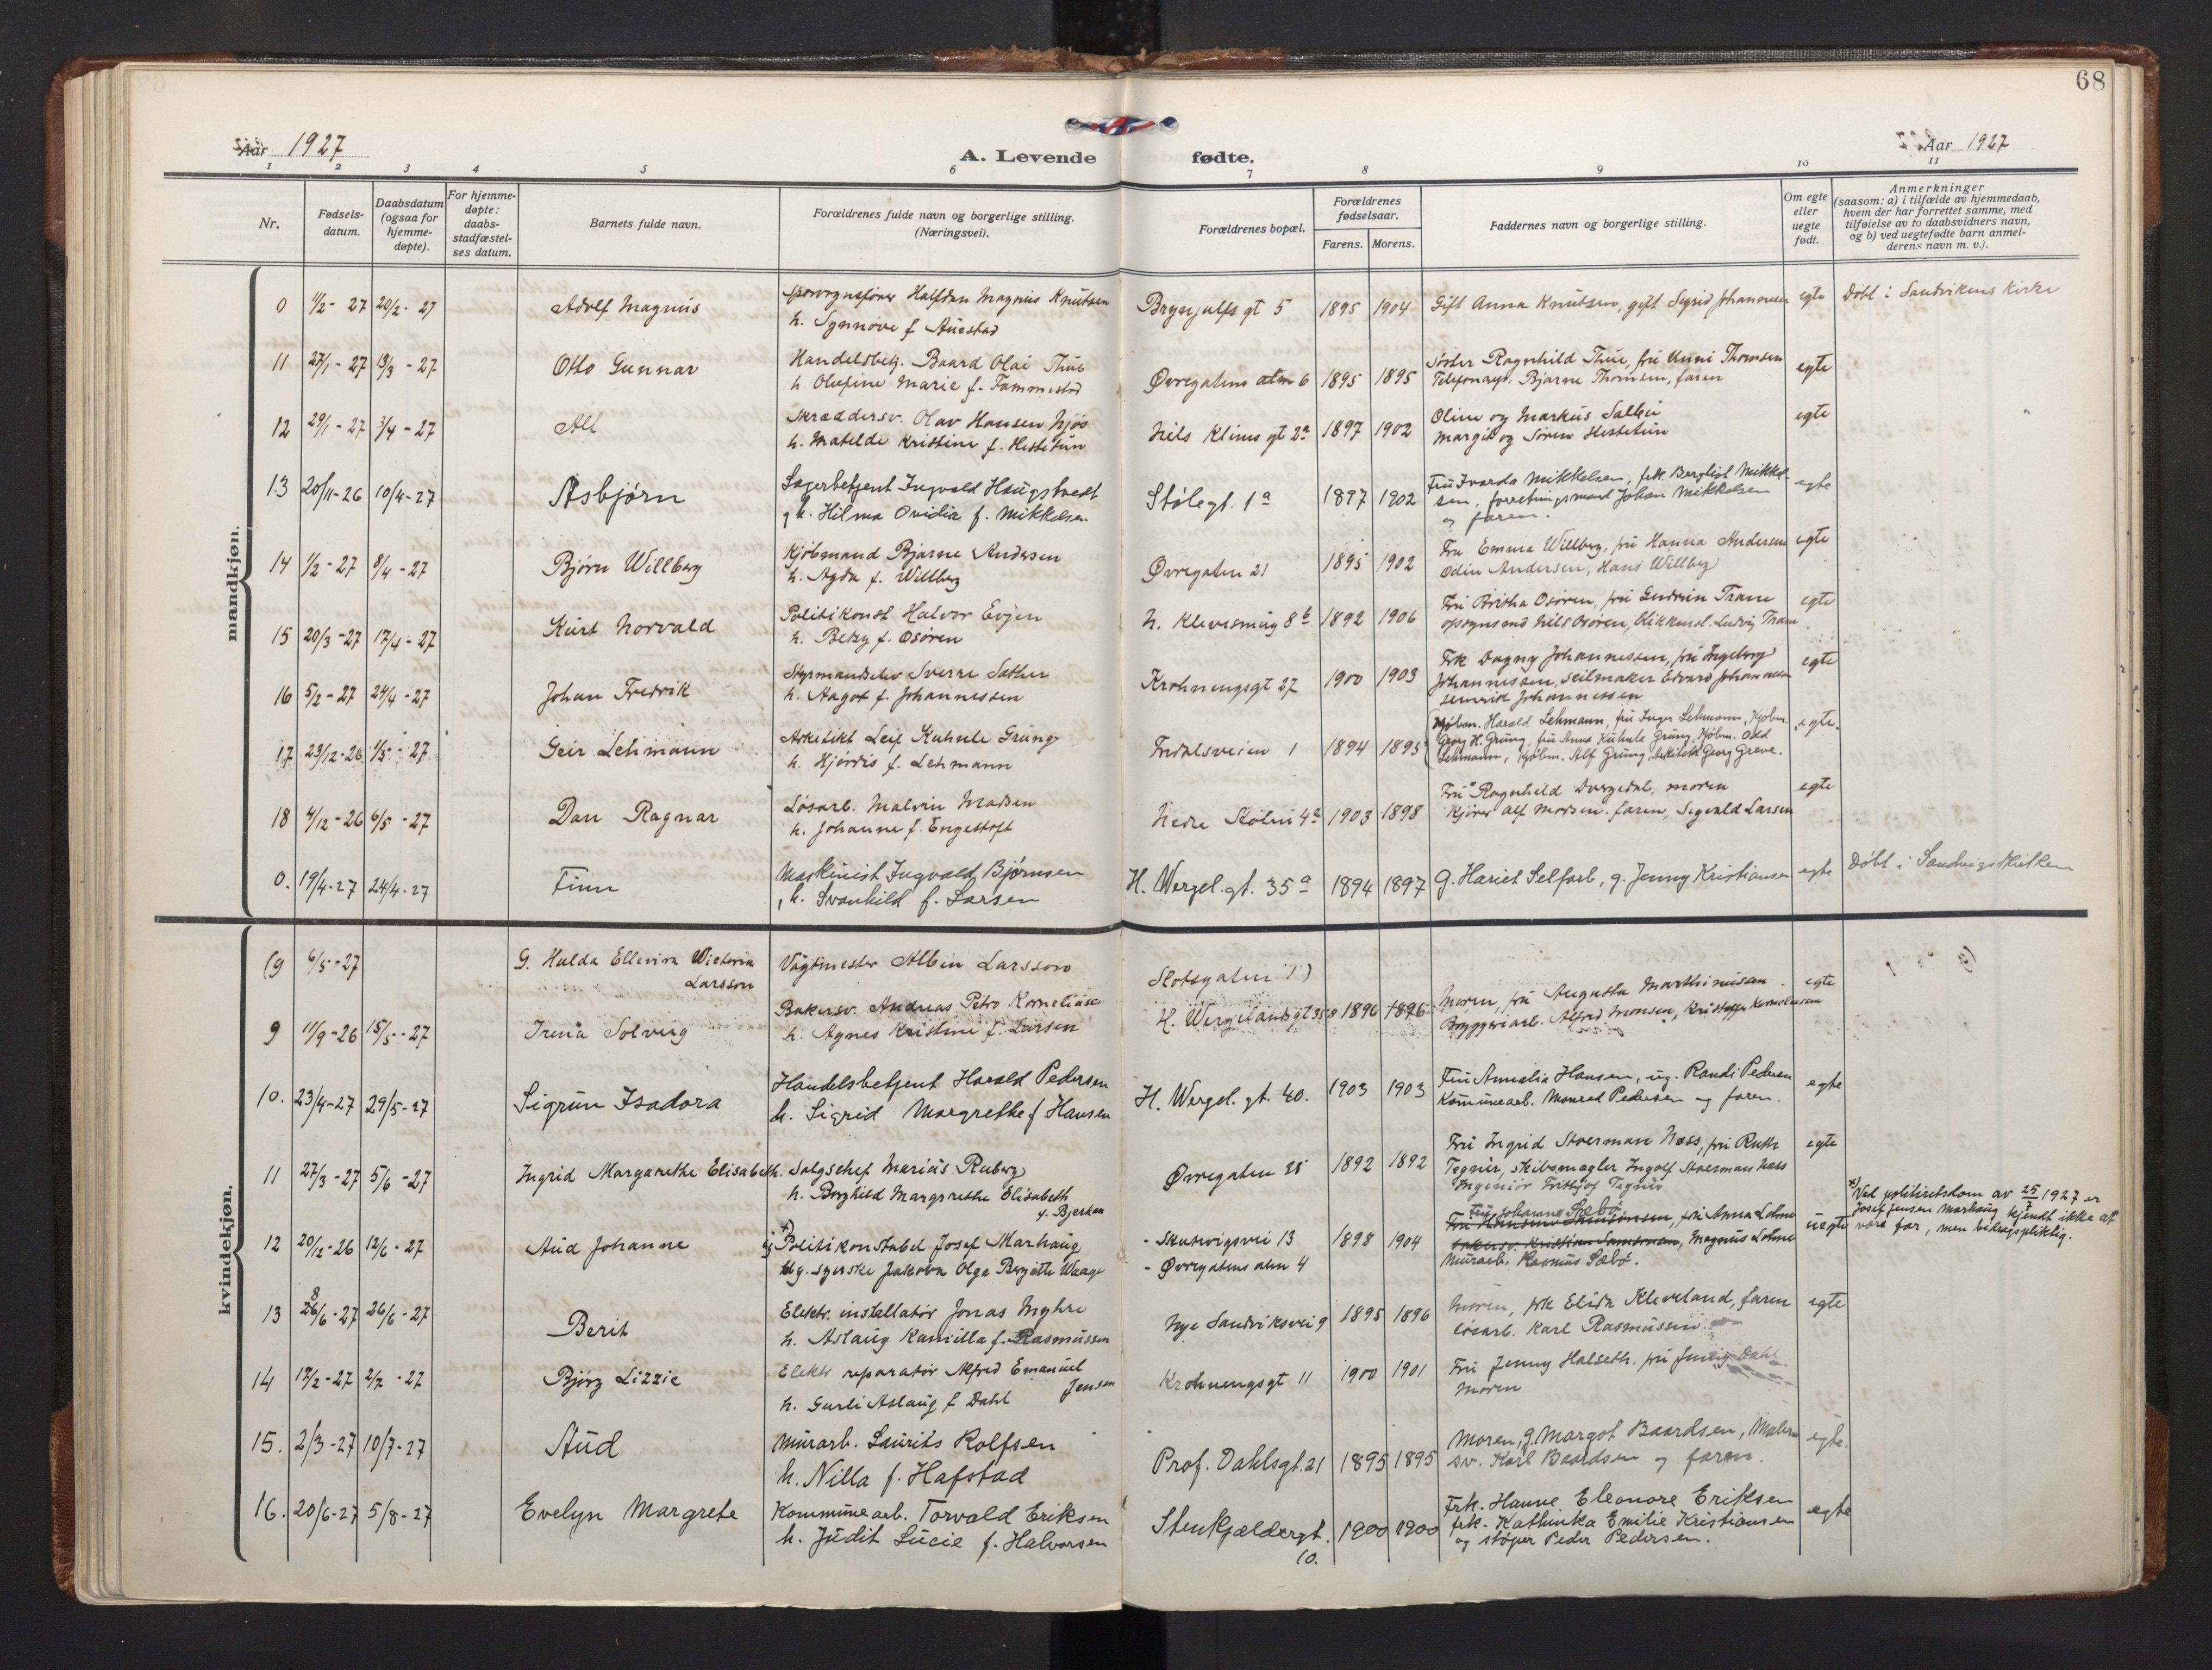 68
Aar 1927
A. Levende fødte.
Aar 1927
1 2 3 4 5 6 7 8 9 10 11
Nr.
Fødsels-
datum.
Daabsdatum
(ogsaa for
hjemme-
døpte).
For hjemme-
døpte:
daabs-
stadfæstel-
ses datum.
Barnets fulde navn.
Forældrenes fulde navn og borgerlige stilling.
(Næringsvei).
Forældrenes bopæl.
Forældrenes
fødselsaar.
Farens. Morens.
Faddernes navn og borgerlige stilling.
Om egte
eller
uegte
født.
Anmerkninger
(saasom: a) i tilfælde av hjemmedaab,
hvem der har forrettet samme, med
tilføielse av to daabsvidners navn,
og b) ved uegtefødte barn anmel-
derens navn m. v.).
mandkjøn.
0 11/2 - 27 20/2 - 27 Adolf Magnus
Sporvognsfører Halfdan Magnus Knutsen
h. Synnøve f. Auestad
Brynjulfs gt 5 1895 1904 Gift Anna Knutsen, gift Sigrid Johannesen egte Døbt i Sandvikens Kirke
11 27/1 - 27 13/3 - 27 Otto Gunnar
Handelsbetj. Baard Olai Thue
h. Olufine Marie f. Fammestad
Øvregatens alm 6 1895 1895
Søster Ragnhild Thue, fru Unni Thomsen
Bjarne Thomsen, faren
egte
12 29/1 - 27 3/4 - 27
Skræddersv. Olav Hansen Njøs
h. Matilde Kristine f. Hestetun
Nils Klims gt 2a 1897 1902
Oline og Markus
Margit og Søren Hestetun
egte
13 20/11-26 10/4-27 Asbjørn
Lagerbetjent Ingvald Haugstvedt
h. Hilma Ovidia f. Mikkelsen.
Stølegt. 1a 1897 1902
Fru Ivarda Mikkelsen, frk. Bergliot Mikkel-
sen, forretningsmand Johan Mikkelsen
og faren.
egte
14 1/2 - 27 8/4 - 27 Bjørn Willberg
Kjøbmand Bjarne Andersen
h. Agda f. Willberg
Øvregaten 21 1895 1902
Fru Emma Willberg, fru Hanna Andersen
Odin Andersen, Hans Willberg
egte
15 20/3 -27 17/4 - 27 Kurt Norvald
Politikonst Halvor Evjen
h. Betzy f. Osøren
1892 1906
Fru Birtha Osøren, fru Gudrun Trane
opsynsmd Nils Osøren, blikkensl. Ludvig Trane
egte
16 5/2 - 27 24/4 - 27 Johan Fredrik
Sverre Sæther
h. Aagot f. Johannessen
Krohnengsgt 27 1900 1903
Frk Dagny Johannessen, fru Ingeborg
Johannessen, seilmaker Edvard Johannessen
Johannessen
egte
17 23/12-26 1/5 - 27 Geir Lehmann
Arkitekt Leif Kuhnle Grung
h. Hjørdis f. Lehmann
1 1894 1895
Kjøbm. Harald Lehmann, fru Inger Lehmann, Kjøbm.
Georg H. Grung, fru Anna Kuhnle Grung, Kjøbm. Odd
Lehmann, Kjøbm. Alf Grung, Arkitekt Georg Greve.
egte.
18 4/12 - 26 6/5 - 27 Dan Ragnar
Løsarb. Malvin Madsen
h. Johanne f. Engeltoft
Nedre Stølen 4a 1903 1898
Fru Ragnhild Dvergedal, moren
Kjører Alf Monsen. faren, Sigvald Larsen
egte
0. 19/4-27 24/4-27 Finn
Maskinist Ingvald Bjørnsen
h. Svanhild f. Larsen
H. Wergel. gt. 35a 1894 1897 g. Hariet Selfarb, g. Jenny Kristiansen egte Døbt i Sandvigskirken
kvindekjøn.
(9 6/5 -27 G. Hulda Ellevira Wictoria
Larsson
Vagtmester Albin Larsson
Slotsgaten
9 11/9 -26 15/5 - 27 Irena Solveig
Bakersv. Andreas Petro Korneliusen
h. Agnes Kristine f. Larsen
H. Wergelandsgt 35a 1896 1896
Moren, fru Augusta Marthinussen
Bryggeriarb. Alfred Monsen, Kristoffer Korneliussen
egte
10. 23/4-27 29/5-27 Sigrun Isadora
Handelsbetjent Harald Pedersen
h. Sigrid Margrethe f Hansen
H. Wergel. gt. 40. 1903 1903
Fru Amalia Hansen, ug. Randi Pedersen
Komunearb. Monrad Pedersen og faren.
egte
11 27/3 - 27 5/6 -27 Ingrid Margarethe Elisabeth.
Salgschef Marius Ruberg
h. Borghild Margrethe Elisabeth
f. Bjerkan
Øvregaten 25 1892 1892
Fru Ingrid Stoerman Næss, fru Ruth
Tegnér, skibsmægler Ingolf Stoerman Næss
Ingeniør Fritjof Tegnér
egte
12 20/12 -26 12/6 - 27 Aud Johanne
x)
Politikonstabel Josef Marhaug
ug. syerske Jakoba Olga Bergitte Waage
- Skutevigsvei 13
- Øvregatens alm 4
1898 1904
Fru Johanna Sæbø
fru Anna Lohne
Bakersv. Kristian Samsonsen, Magnus Lohne
Murarb. Rasmus Sæbø.
uegte
x) Ved politiretsdom av 25/5 1927 er
Josef Jensen Marhaug kjendt ikke at
være far, men bidragspliktig.
13 8
26/6 -27 26/6 -27 Berit
Elektr. installatør Jonas Myhre
h. Aslaug Kamilla f. Rasmussen
Nye Sandviksvei 9 1895 1896
Moren, frk Elida Kleveland, faren
løsarb. Karl Rasmussen
egte
14 17/2 -27 2/7 - 27 Bjørg Lizzie
Elektr reparatør Alfred Emanuel
Jensen
h. Gurli Aslaug f Dahl
Krohnengsgt 11 1900 1901
Fru Jenny Halseth. fru Jenny Dahl
Moren
15. 2/3 -27 10/7-27 Aud
Murarb. Laurits Rolfsen
h. Nilla f. Hafstad
Prof. Dahlsgt. 21 1895 1895
Moren, g. Margot Baardsen, Maler
sv. Karl Baardsen og faren.
egte.
16. 20/6-27 5/8-27 Evelyn Margrete
Kommunearb. Torvald Eriksen
h. Judit Lucie f. Halvorsen
Stenkjældergt.
10.
1900 1900
Frk. Hanne Eleonore Eriksen
frk. Kathinka Emilie Kristiansen
og støper Peder Pedersen.
egte